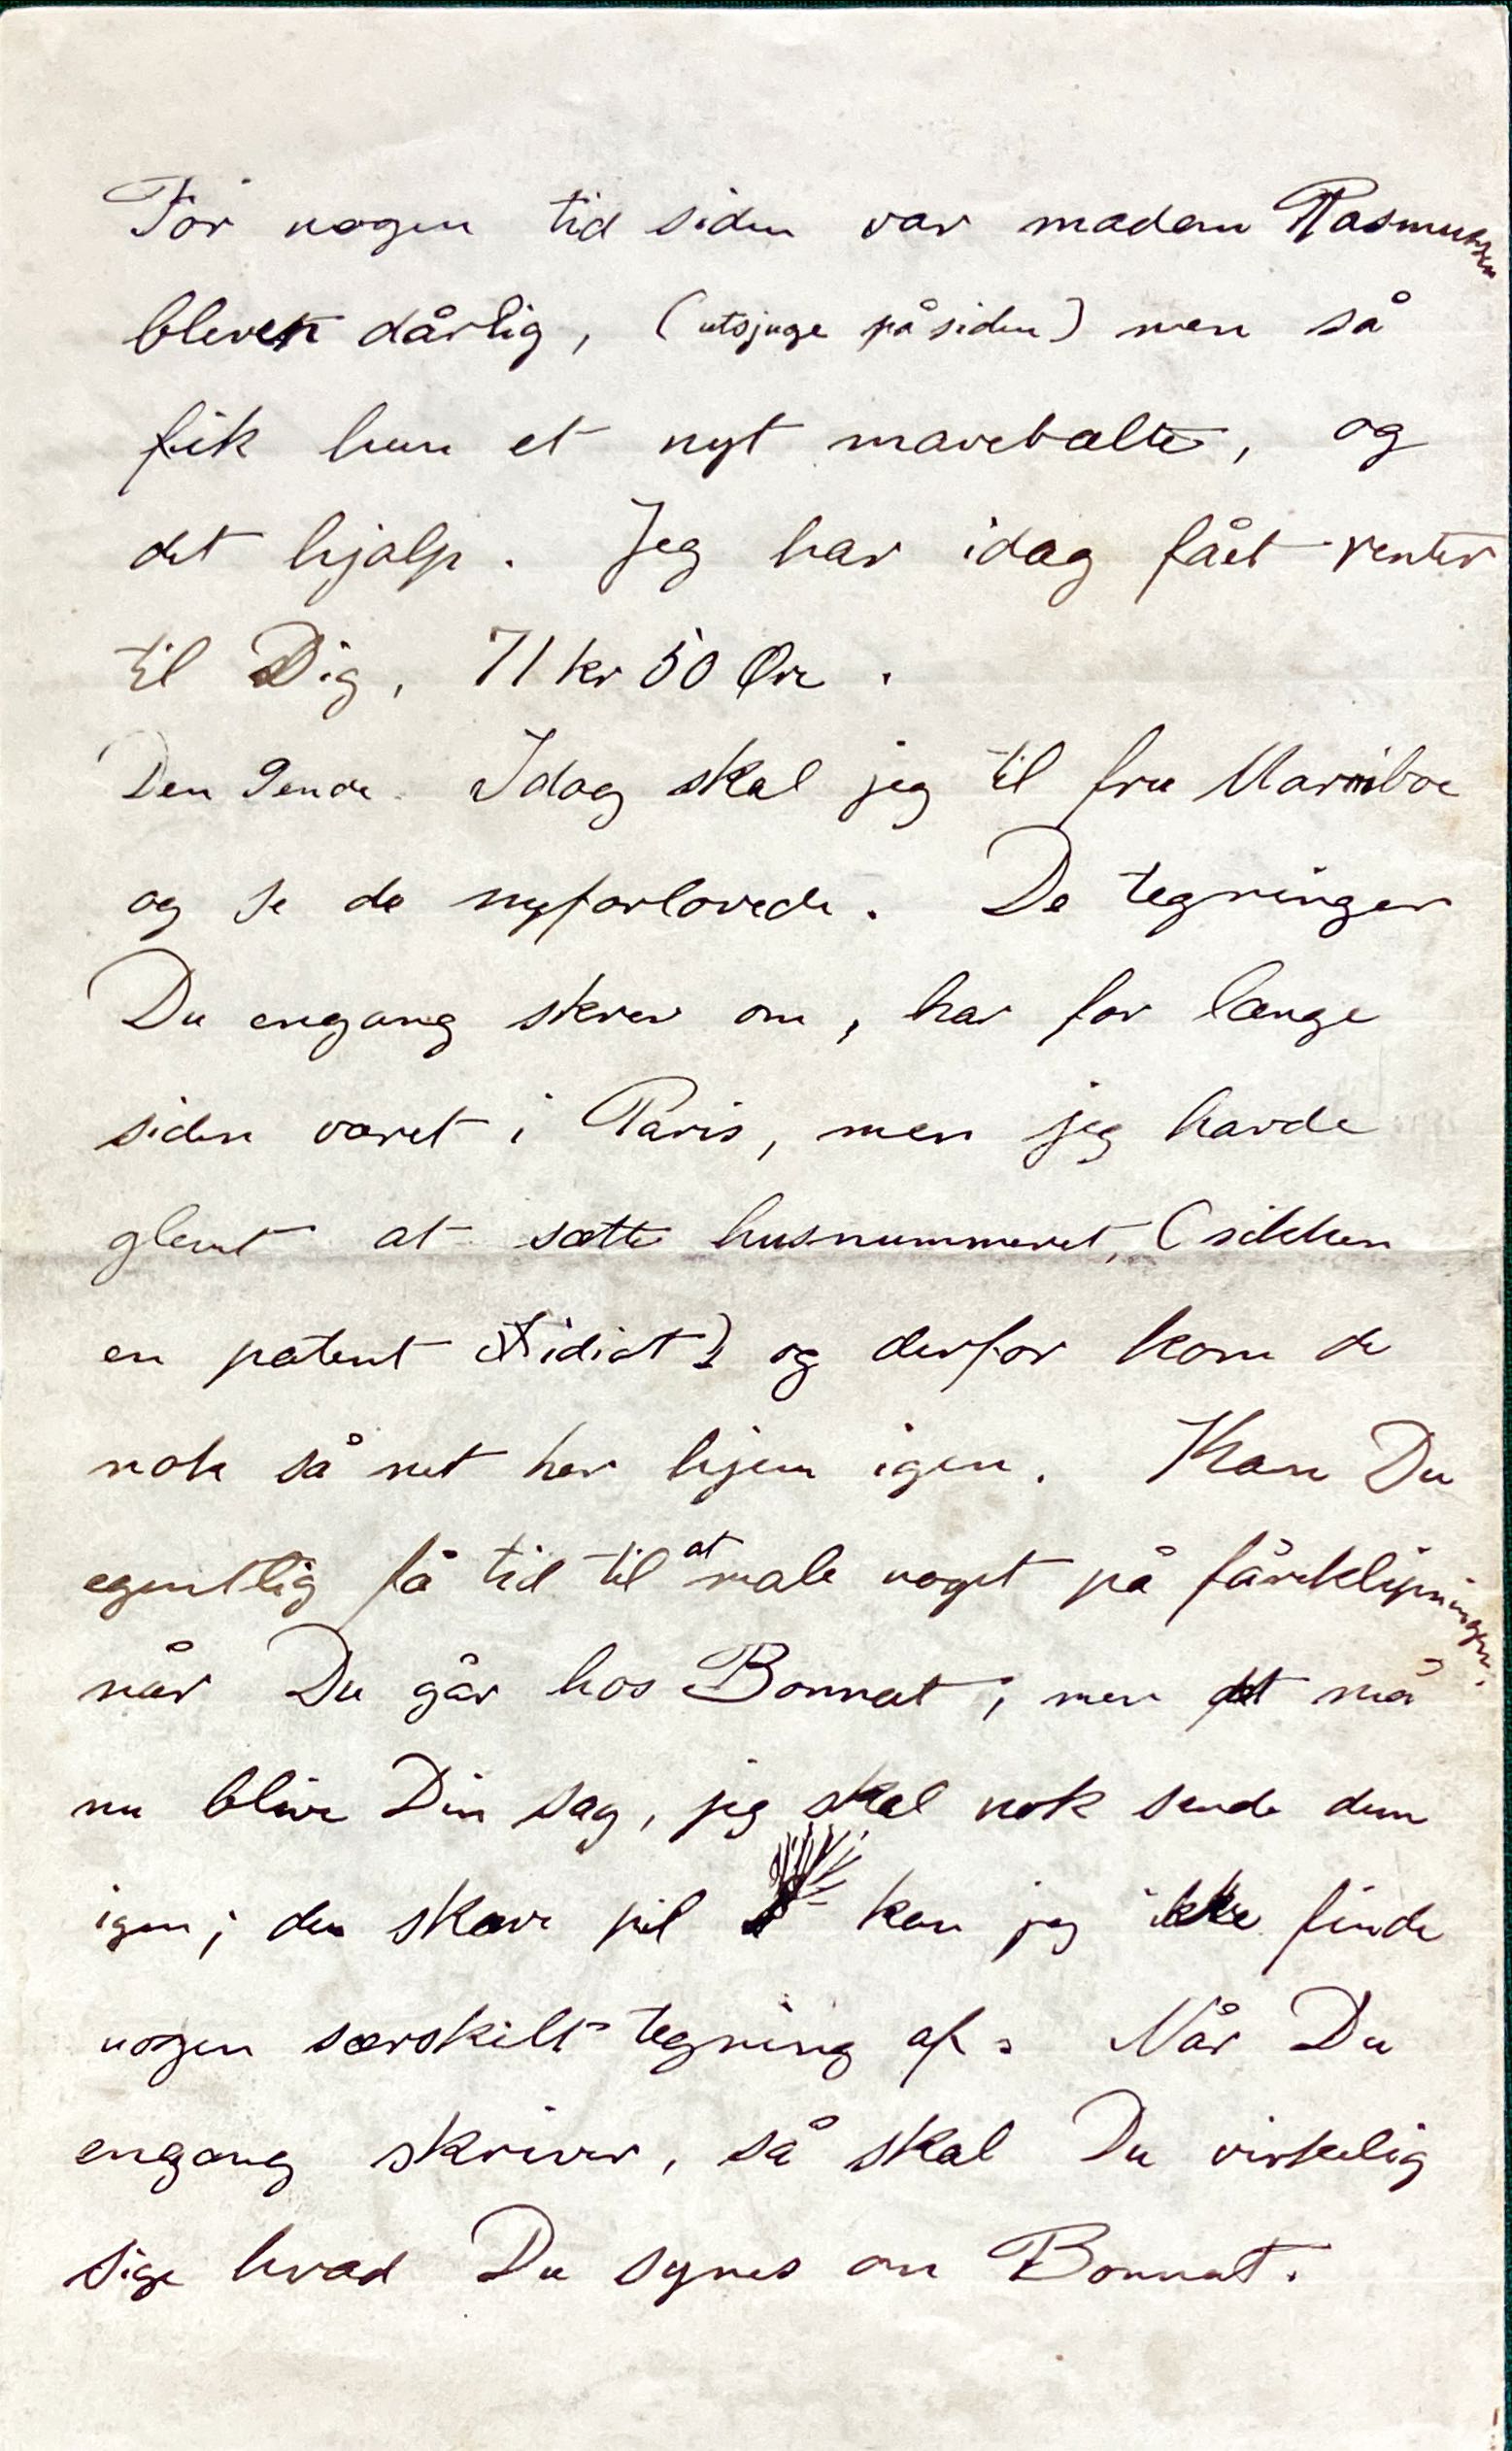 For nogen tid siden var madam Rasmussen
bleven dårlig, (utsjuge på siden) men så
fik hun et nyt mavebælte, og
det hjalp. Jeg har idag fået renter
til Dig, 71 kr 50 Øre.
Den 9ende. Idag skal jeg til fru Marriboe
og se de nyforlovede. De tegninger
Du engang skrev om, har for længe
siden været i Paris, men jeg havde
glemt at sætte husnummeret, (sikken
en patent idiot) og derfor kom de
nok så net her hjem igen. Kan Du
egentlig få tid til at male noget på fåreklipningen,
når Du går hos Bonnat; men det må
nu blive Din sag, jeg skal nok sende dem
igen; den skæve pil kan jeg ikke finde
nogen særskilt tegning af. Når Du
engang skriver, så skal Du virkelig
sige hvad Du synes om Bonnat.